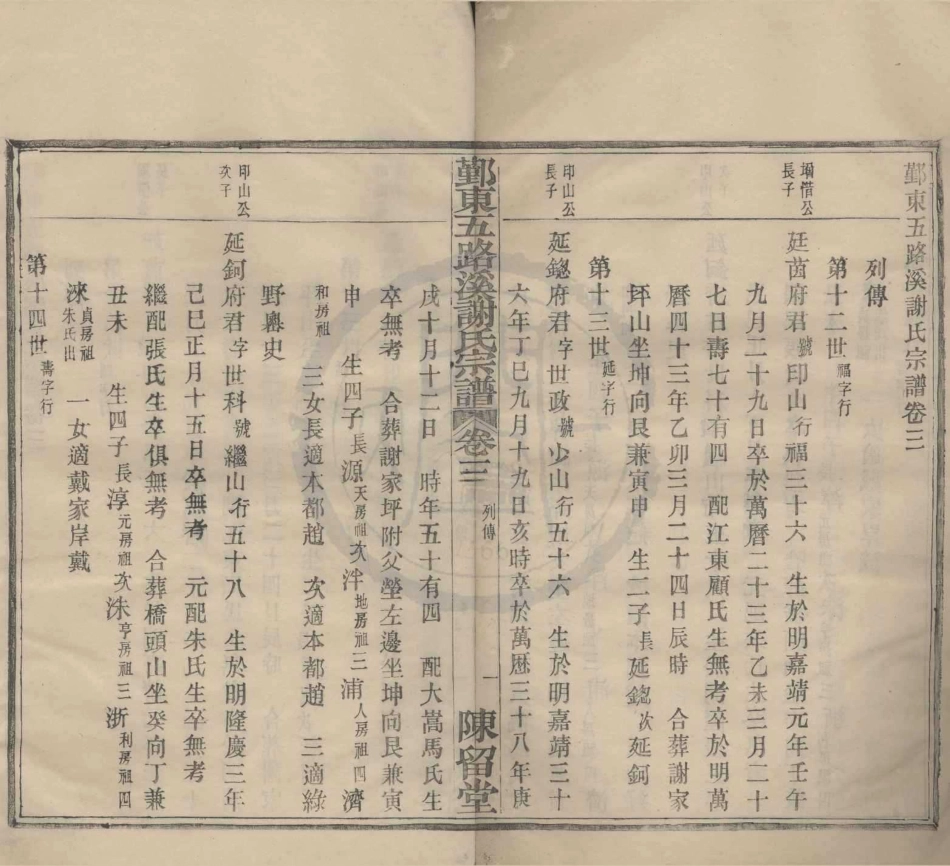 鄞東五路溪謝氏宗譜卷三
列傳
第十二世 福字行
堳偕公長子
廷茵府君號印山行福三十六 生於明嘉靖元年壬午
九月二十九日卒於萬曆二十三年乙未三月二十
七日壽七十有四 配江東顧氏生無考卒於明萬
曆四十三年乙卯三月二十四日辰時 合葬謝家
坪山坐坤向艮兼寅申 生二子長延鎞次延鈳
第十三世 延字行
印山公長子
延鎞府君字世政號少山行五十六 生於明嘉靖三十
六年丁巳九月十九日亥時卒於萬曆三十八年庚
鄞東五路溪謝氏宗譜 卷三 列傳 一 陳留堂
戌十月十二日 時年五十有四 配大嵩馬氏生
卒無考 合葬謝家坪附父塋左邊坐坤向艮兼寅
申 生四子長源天房祖次泮地房祖三浦人房祖四濟
和房祖 三女長適本都趙 次適本都趙 三適綠
野輿史
印山公次子
延鈳府君字世科號繼山行五十八 生於明隆慶三年
己巳正月十五日卒無考 元配朱氏生卒無考
繼配張氏生卒俱無考 合葬橋頭山坐癸向丁兼
丑未 生四子長淳元房祖次洙亨房祖三浙利房祖四
涞貞房祖朱氏出 一女適戴家岸戴
第十四世 壽字行